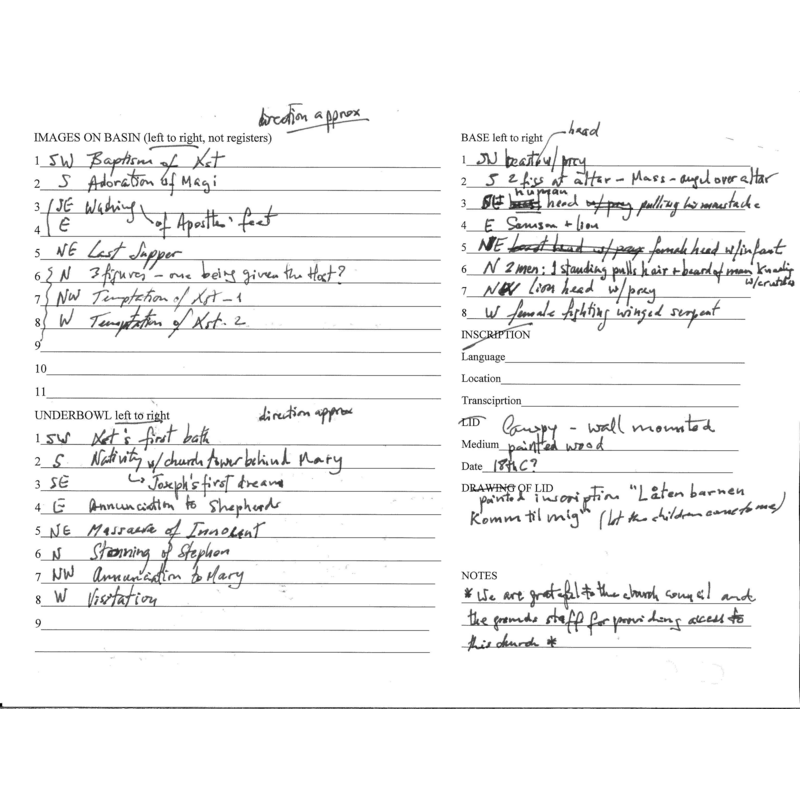 direction approx
IMAGES ON BASIN (left to right, not registers)
1 SW Baptism of Xst
2 S Adoration of Magi
3 SE Washing
4 E of Apostles' feet
5 NE Last Supper
6 N 3 figures - one being given the Host?
7 NW Temptation of Xst - 1
8 W Temptation of Xst - 2
9
10
11
UNDERBOWL left to right direction approx
1 SW Xst's first bath
2 S Nativity w/church tower behind Mary
3 SE Joseph's first dream
4 E Annunciation to Shepherds
5 NE Massacre of Innocent
6 N Stonning of Stephen
7 NW Annunciation to Mary
8 W Visitation
9
BASE left to right head
1 SW beast w/prey
2 S 2 figs at altar - Mass - angel over altar
human
3 SE head w/prey pulling his moustache
4 E Samson + lion
5 NE beast head w/prey female head w/infant
6 N 2 men: 1 standing pulls hair + beard of man kneeling
w/crutches
7 NW Lion head w/prey
8 W female fighting winged serpent
INSCRIPTION
Language
Location
Transciprtion
LID Canopy - wall mounted
Medium painted wood
Date 18thC?
DRAWING OF LID
painted inscription "Låten barnen
Komm til mig" (let the children come to me)
NOTES
* We are grateful to the church council and
the grounds staff for providing access to
this church *